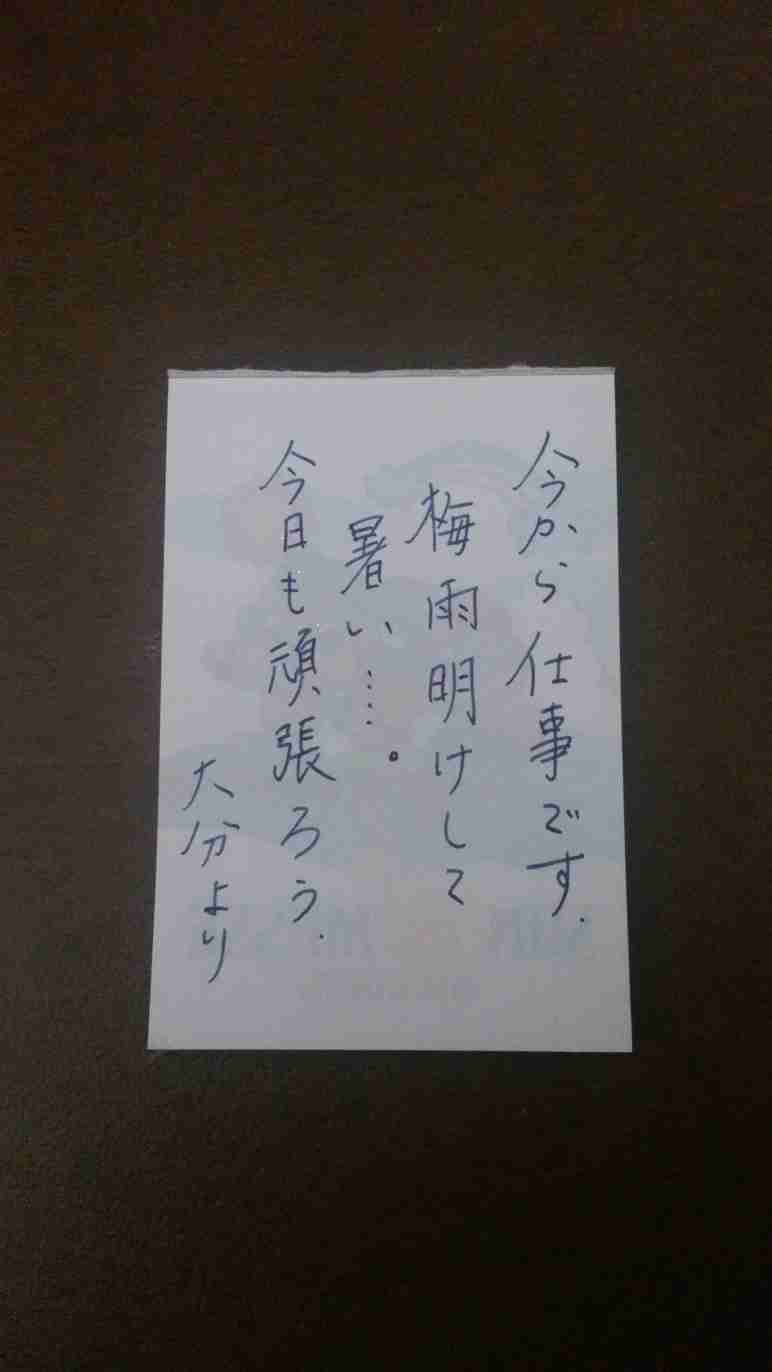 今から仕事です.
梅雨明けして
暑い……。
今日も頑張ろう.
大分より